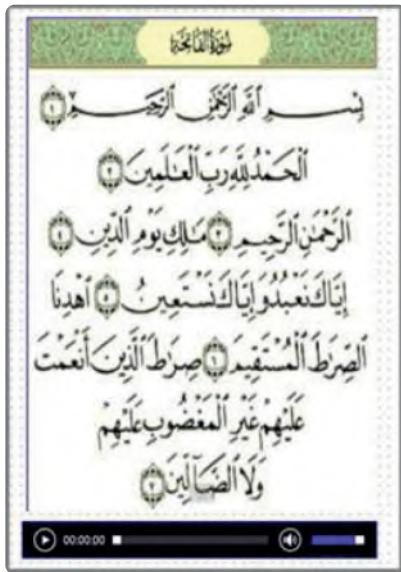 سُورَةُ الْفَاتِحَةِ
بِسْمِ ٱللَّهِ ٱلرَّحْمَٰنِ ٱلرَّحِيمِ ١
ٱلْحَمْدُ لِلَّهِ رَبِّ ٱلْعَٰلَمِينَ ٢
ٱلرَّحْمَٰنِ ٱلرَّحِيمِ ٣ مَٰلِكِ يَوْمِ ٱلدِّينِ ٤
إِيَّاكَ نَعْبُدُ وَإِيَّاكَ نَسْتَعِينُ ٥ ٱهْدِنَا
ٱلصِّرَٰطَ ٱلْمُسْتَقِيمَ ٦ صِرَٰطَ ٱلَّذِينَ أَنْعَمْتَ
عَلَيْهِمْ غَيْرِ ٱلْمَغْضُوبِ عَلَيْهِمْ
وَلَا ٱلضَّآلِّينَ ٧
00:00:00